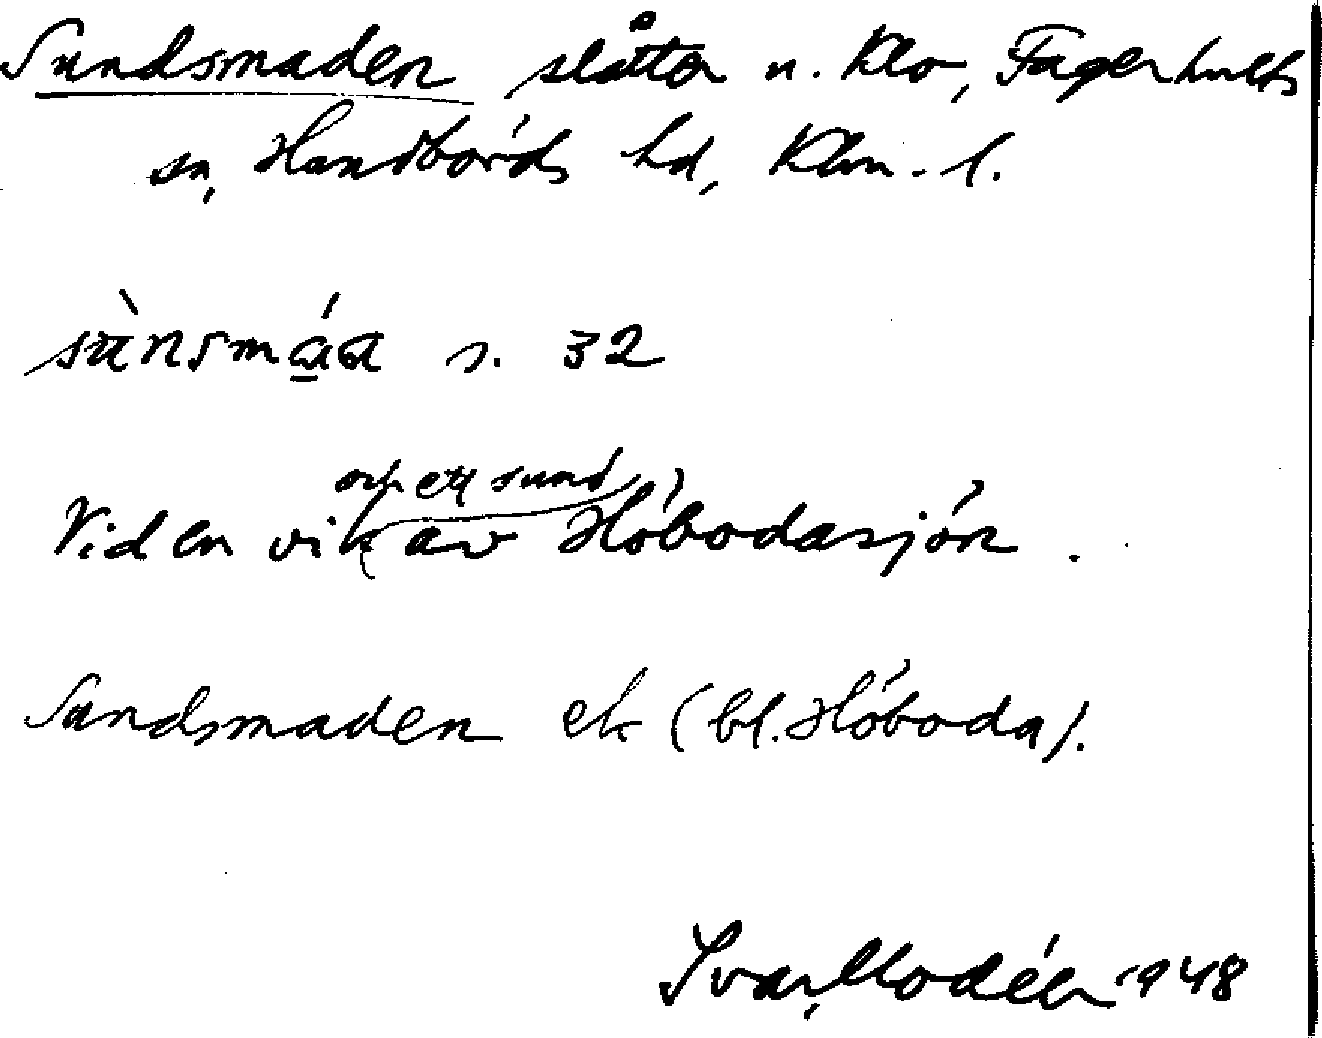 Sundsmaden slåtter u. Klo, Fagerhults
sn, Handbörds hd, Klm. l.
s. 32
Vid en vik och ett sund av Höbodasjön.
Sundsmaden ek (bl. Höboda).
Ivar Modéer 1948